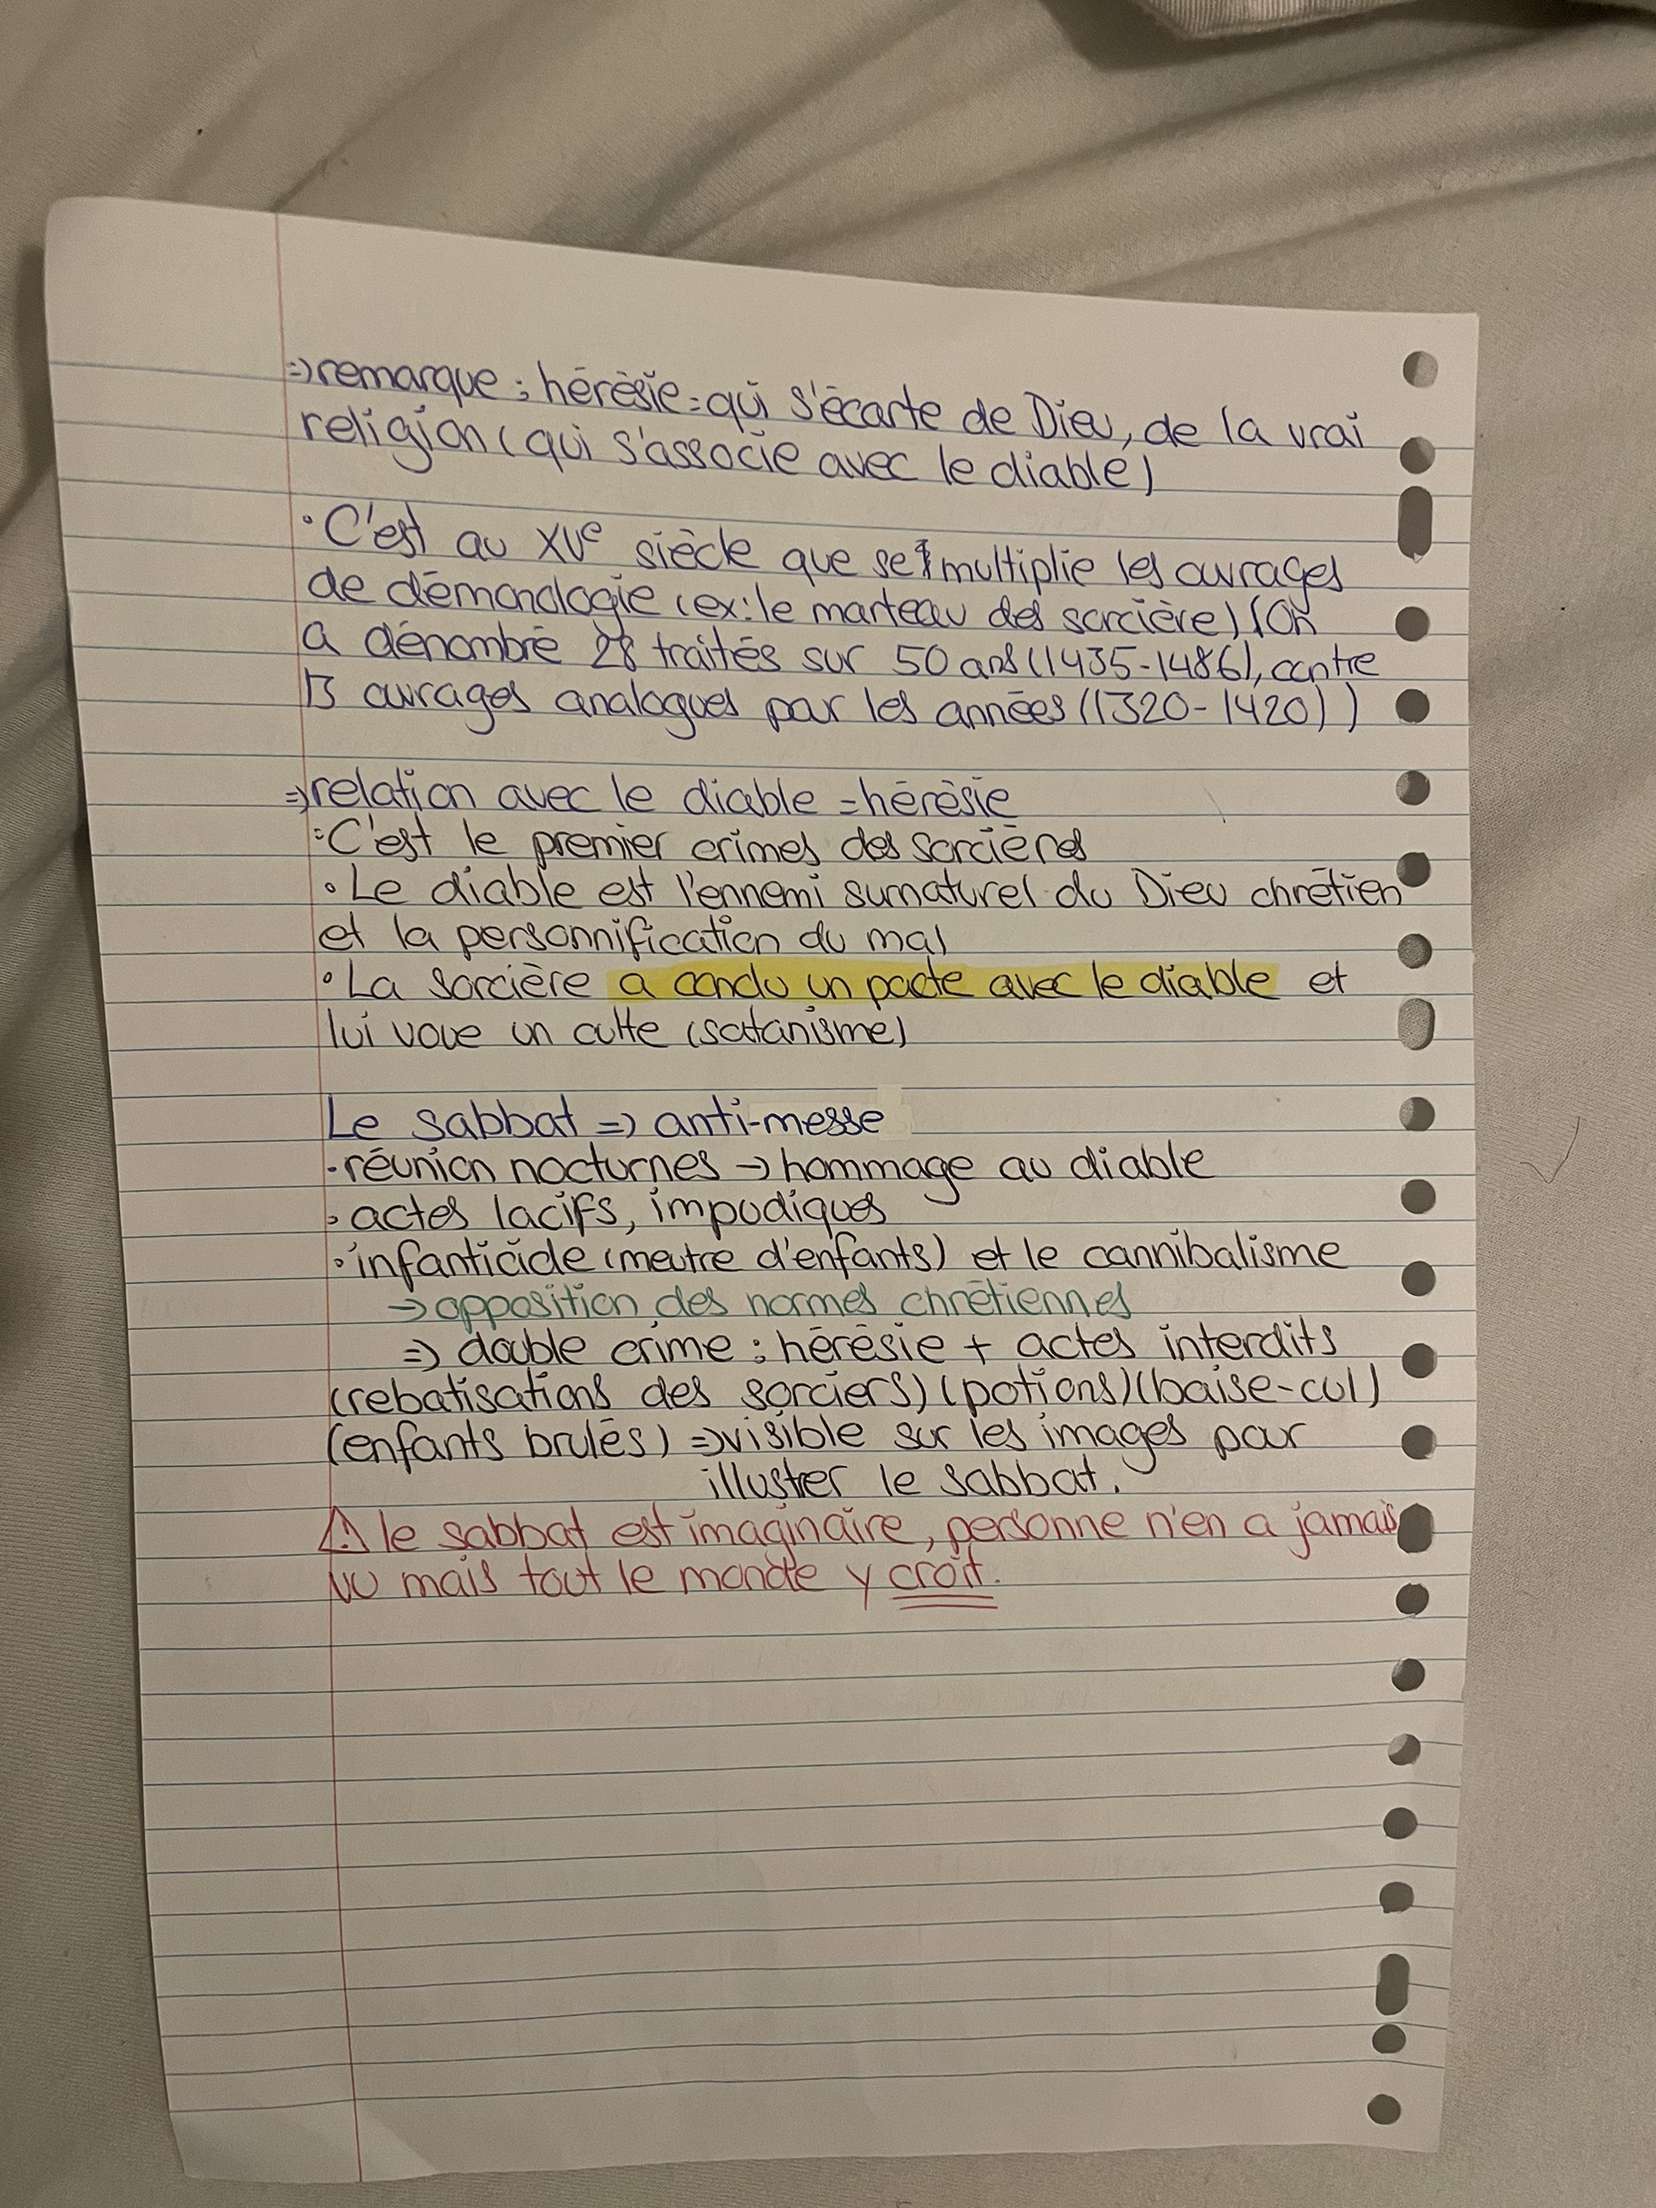 => remarque : hérèsie = qui s'écarte de Dieu, de la vrai
religion (qui s'associe avec le diable)
• C'est au XVe siècle que se multiplie les ouvrages
de démonologie (ex: le marteau des sorcière) (On
a dénombré 28 traités sur 50 ans (1435-1486), contre
13 ouvrages analogues par les années (1320-1420))
=> relation avec le diable = hérèsie
• C'est le premier crimes des sorcières
• Le diable est l'ennemi surnaturel du Dieu chrétien
et la personnification du mal
• La sorcière a conclu un pacte avec le diable et
lui voue un culte (satanisme)
Le sabbat => anti-messe
• réunion nocturnes -> hommage au diable
• actes lacifs, impudiques
• infanticide (meutre d'enfants) et le cannibalisme
-> opposition des normes chrétiennes
=> double crime : hérèsie + actes interdits
(rebatisations des sorciers) (potions) (baise-cul)
(enfants brulés) => visible sur les images pour
illustrer le sabbat.
⚠ le sabbat est imaginaire, personne n'en a jamais
vu mais tout le monde y croit.